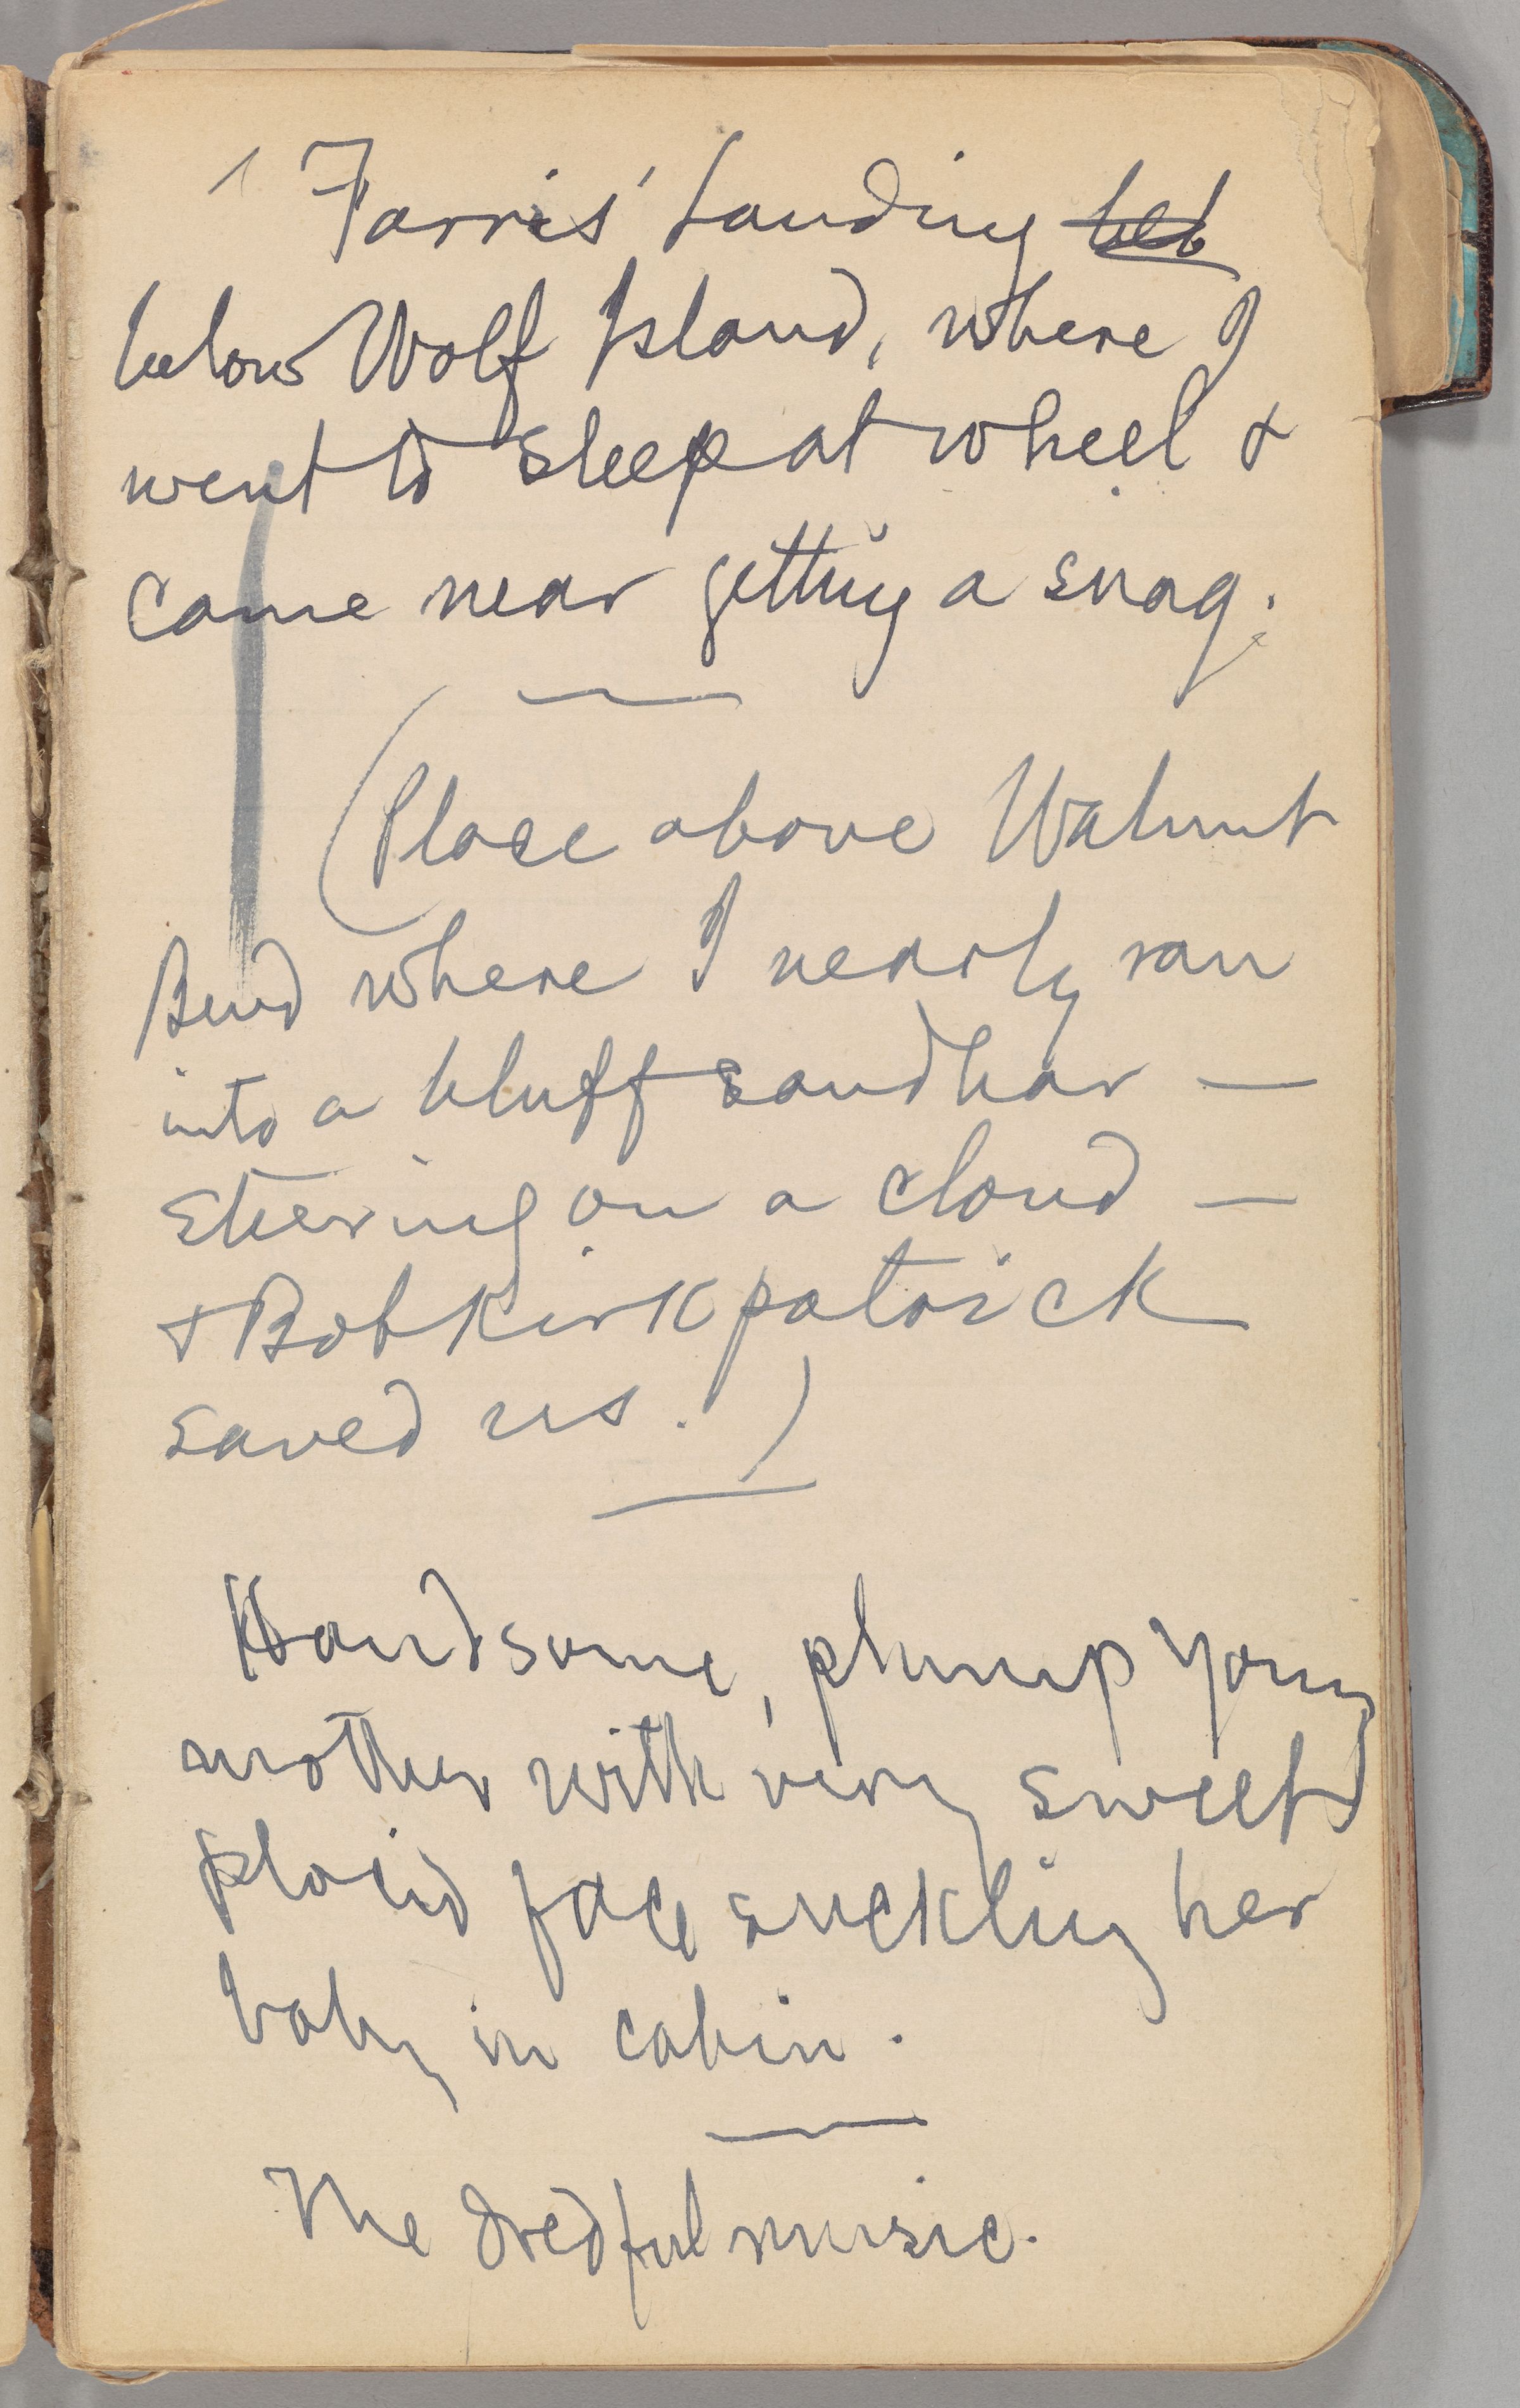 Farris' Landing bel
below Wolf Island, where I
went to sleep at wheel &
came near getting a snag.
(Place above Walnut
Bend where I nearly ran
into a bluff sandbar —
steering on a cloud —
& Bob Kirkpatrick
saved us.)
Handsome, plump young
mother with very sweet
placid face suckling her
baby in cabin.
The dredful music.